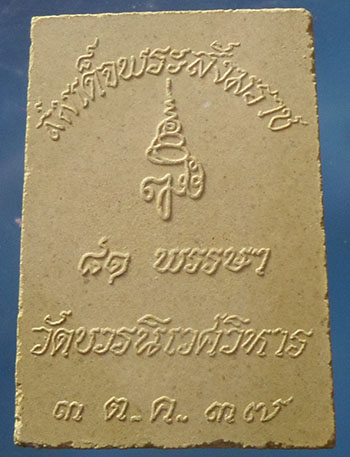 สมเด็จพระสังฆราช
๘๑ พรรษา
วัดบวรนิเวศวิหาร
๓ ต.ค. ๓๗